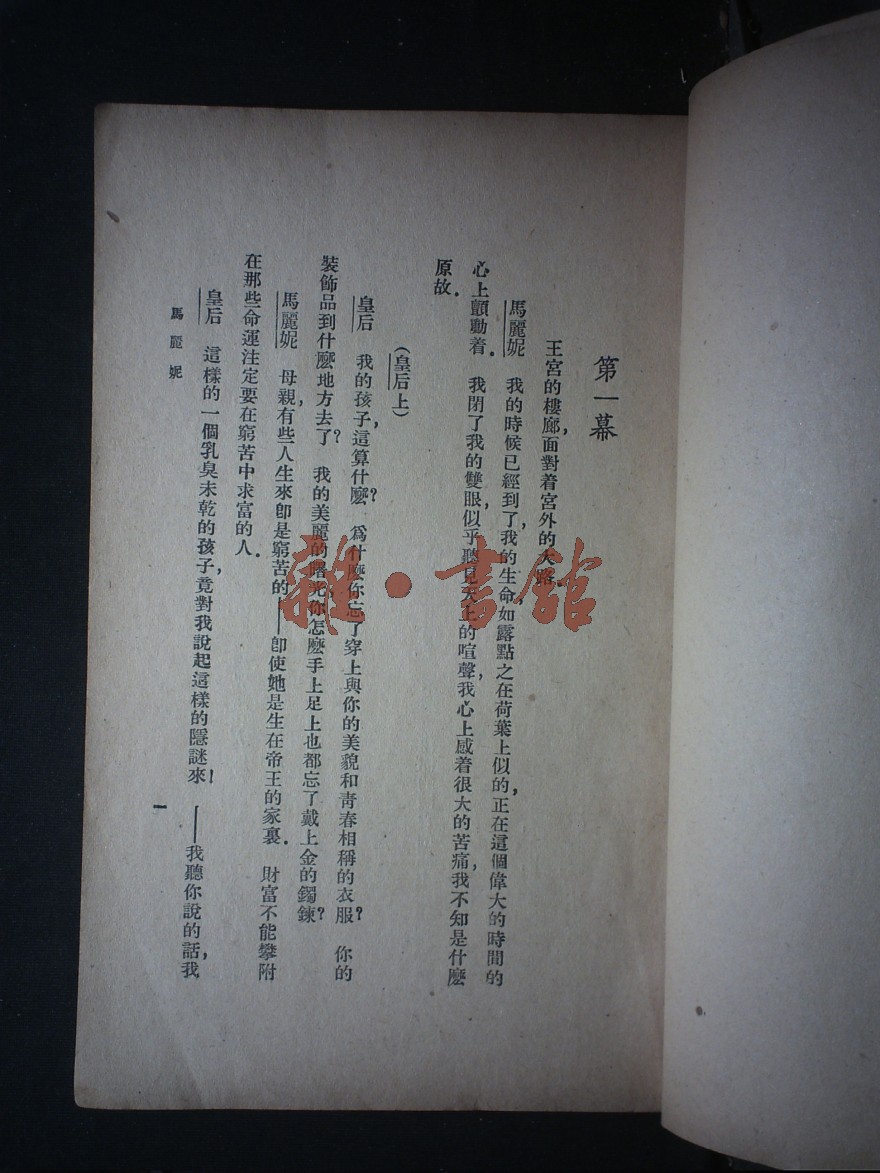 第一幕
王宮的樓廊，面對着宮外的大路．
馬麗妮　我的時候已經到了，我的生命，如露點之在荷葉上似的，正在這個偉大的時間的
心上顫動着．　我閉了我的雙眼，似乎聽見天上的喧聲，我心上感着很大的苦痛，我不知是什麽
原故．
（皇后上）
皇后　我的孩子，這算什麽？　爲什麽你忘了穿上與你的美貌和青春相稱的衣服？　你的
裝飾品到什麽地方去了？　我的美麗的曙光，你怎麽手上足上也都忘了戴上金的鐲鍊？
馬麗妮　母親，有些人生來卽是窮苦的——卽使她是生在帝王的家裏．　財富不能攀附
在那些命運注定要在窮苦中求富的人．
皇后　這樣的一個乳臭未乾的孩子，竟對我說起這樣的隱謎來！　——我聽你說的話，我
馬麗妮
一
雜·書館